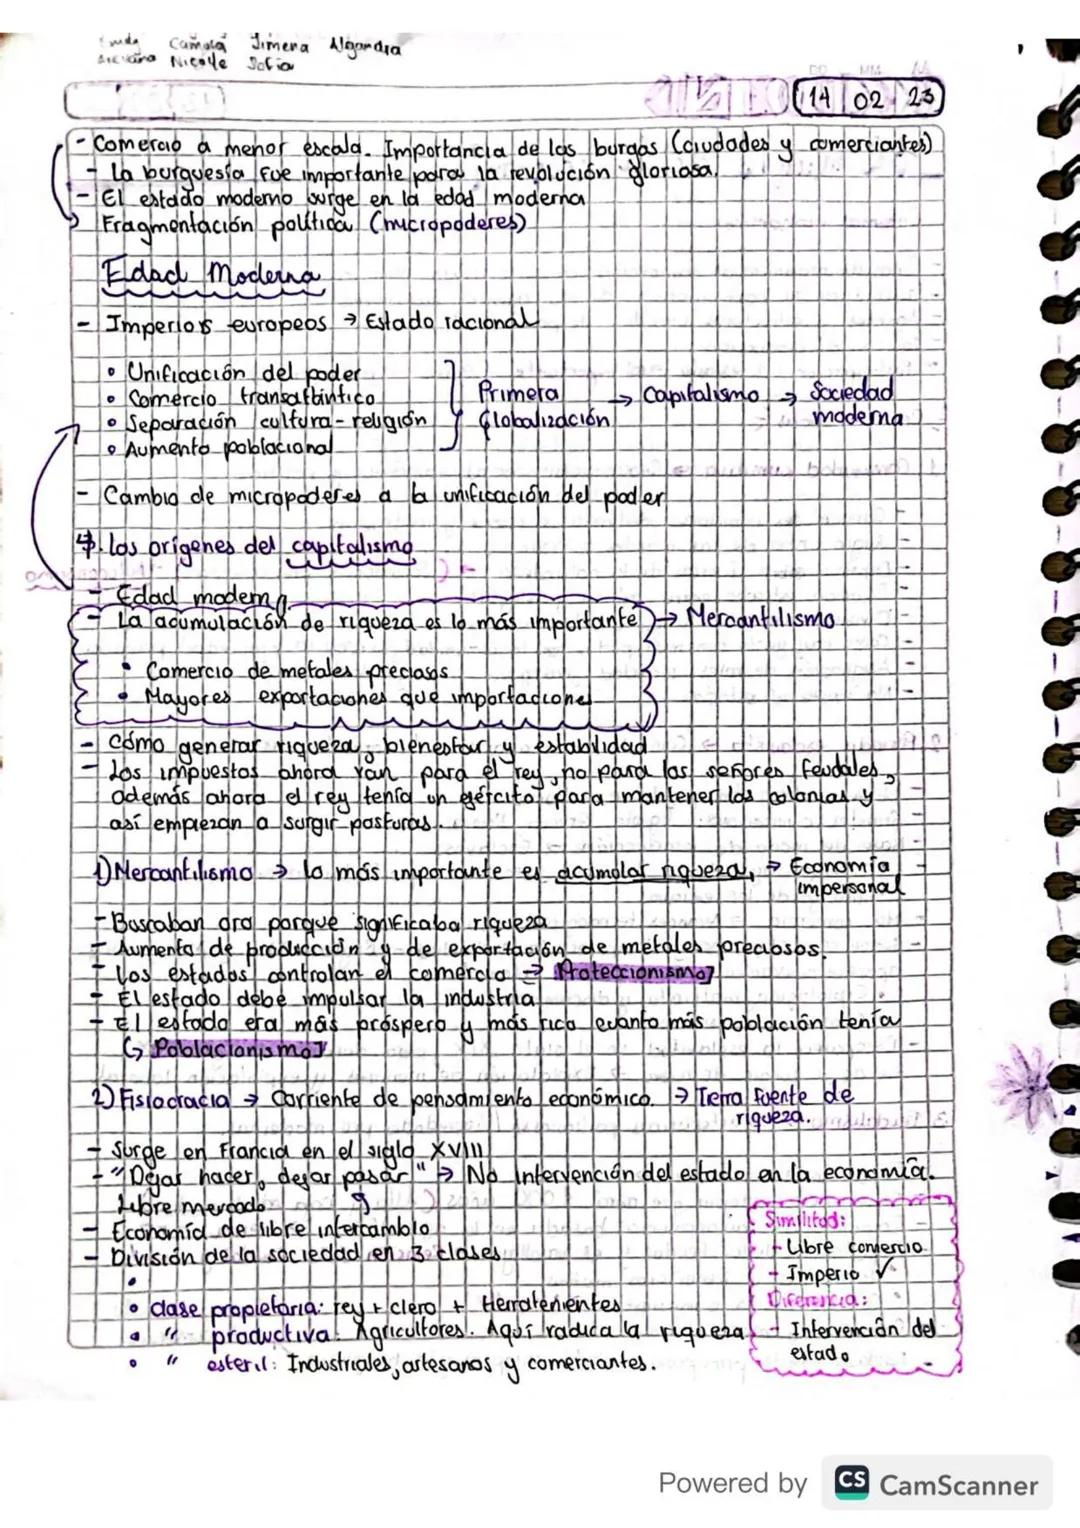 Camola Jimena Alejandra
Nicolle Sofia
DD MM
14 02 23
- Comercio a menor escala. Importancia de las burgos (ciudades y comerciantes)
- La burguesía fue importante para la revolución gloriosa.
- El estado moderno surge en la edad moderna
Fragmentación política (micropoderes)
Edad Moderna
- Imperios europeos → Estado racional
• Unificación del poder
• Comercio transatlántico
• Separación cultura-religión
• Aumento poblacional
Primera Globalización → Capitalismo → Sociedad moderna
- Cambio de micropoderes a la unificación del poder
4. los orígenes del capitalismo
- Edad moderna
- La acumulación de riqueza es lo más importante → Mercantilismo
• Comercio de metales preciosos
• Mayores exportaciones que importaciones
- Cómo generar riqueza, bienestar y estabilidad
- Los impuestos ahora van para el rey, no para los señores feudales,
además ahora el rey tenía un ejército para mantener las colonias y
así empiezan a surgir posturas.
1) Mercantilismo → lo más importante es acumular riqueza, → Economía
impersonal
- Buscaban oro porque significaba riqueza
- Aumento de producción y de exportación de metales preciosos.
- Los estados controlan el comercio → Proteccionismo
- El estado debe impulsar la industria
- El estado era más próspero y más rico cuanto más población tenía
↳ Poblacionismo
2) Fisiocracia → Corriente de pensamiento económico. → Tierra fuente de
riqueza.
- Surge en Francia en el siglo XVIII
- "Dejar hacer, dejar pasar" → No intervención del estado en la economía.
Libre mercado
- Economía de libre intercambio
- División de la sociedad en 3 clases
•
• clase propietaria: rey + clero + terratenientes
• " productiva: Agricultores. Aquí radica la riqueza
• " esteril: Industriales, artesanos y comerciantes.
Similitud:
- Libre comercio
- Imperio ✓
Diferencia:
- Intervención del
estado
Powered by CS CamScanner